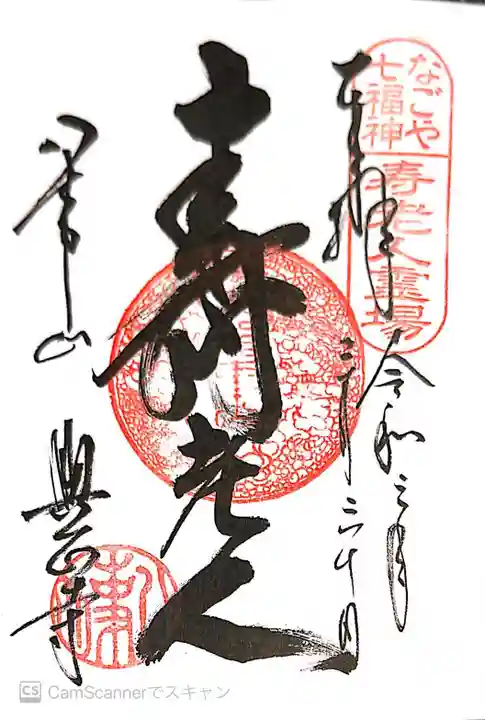 なごや
七福神
寿老人霊場
奉拝
令和三年
三月二十日
寿老人
八事山
興正寺
CS CamScannerでスキャン